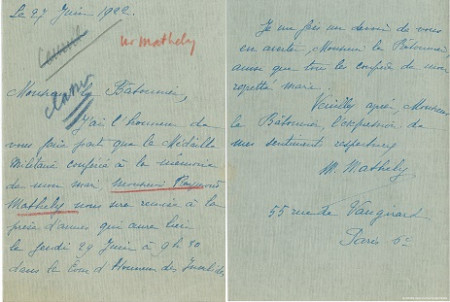 Le 27 Juin 1922.
Mr Mathely
Monsieur le Bâtonnier,
J'ai l'honneur de
vous faire part que la Médaille
Militaire conférée à la mémoire
de mon mari, Monsieur
Mathely nous sera remise à la
prise d'armes qui aura lieu
le Jeudi 29 Juin à 9h 30
dans la Cour d'Honneur des Invalides
Je me fais un devoir de vous
en aviser, Monsieur le Bâtonnier,
ainsi que tous les confrères de mon
regretté mari.
Veuillez agréer, Monsieur
le Bâtonnier, l'expression de
mes sentiments respectueux
M. Mathely
55 rue de Vaugirard
Paris 6e